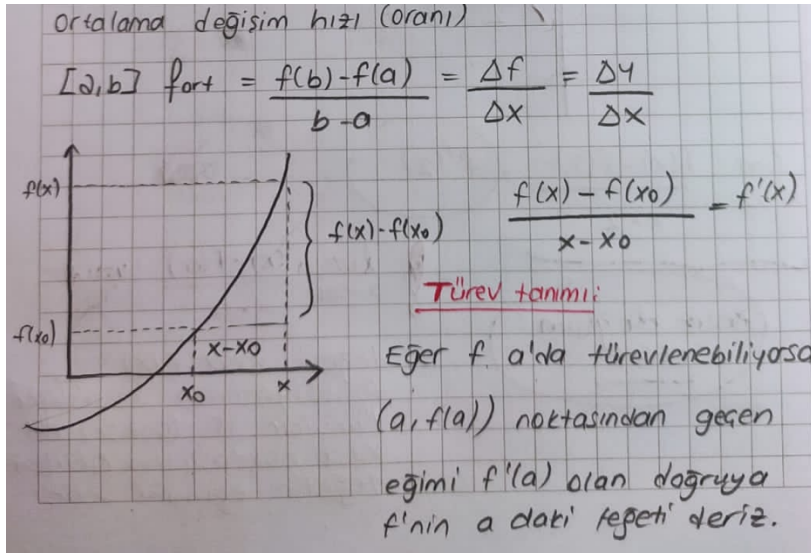 Ortalama değişim hızı (oranı)
[a,b] fort = f(b)-f(a) / b-a = Δf / Δx = Δy / Δx
f(x)
f(x)-f(x0)
f(x) - f(x0) / x-x0 = f'(x)
Türev tanımı:
f(x0)
x-x0
x0
x
Eğer f a'da türevlenebiliyorsa
(a, f(a)) noktasından geçen
eğimi f'(a) olan doğruya
f'nin a daki teğeti deriz.